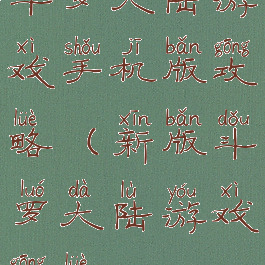 斗罗大陆游
xì shǒu jī bǎn gōng
戏手机版攻
lüè xīn bǎn dǒu
略(新版斗
luó dà lù yóu xì
罗大陆游戏
gōng lüè